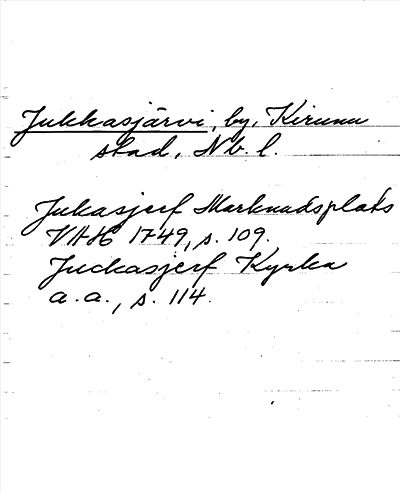 Jukkasjärvi, by, Kiruna
stad, Nb. l.
Jukasjerf Marknadsplats
VAH 1749, s. 109.
Juckasjerf Kyrka
a. a., s. 114.